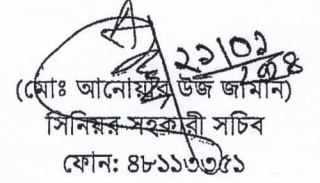 ২১/০১
(মোঃ আনোয়ার উজ জামান)
সিনিয়র সহকারী সচিব
ফোন: ৪৮১১৩৩৫১